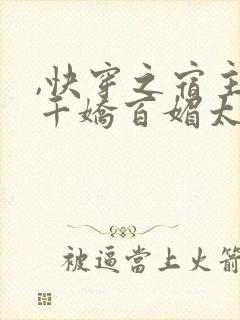 ,快穿之宿主
千嬌百媚太
被逼當上火箭